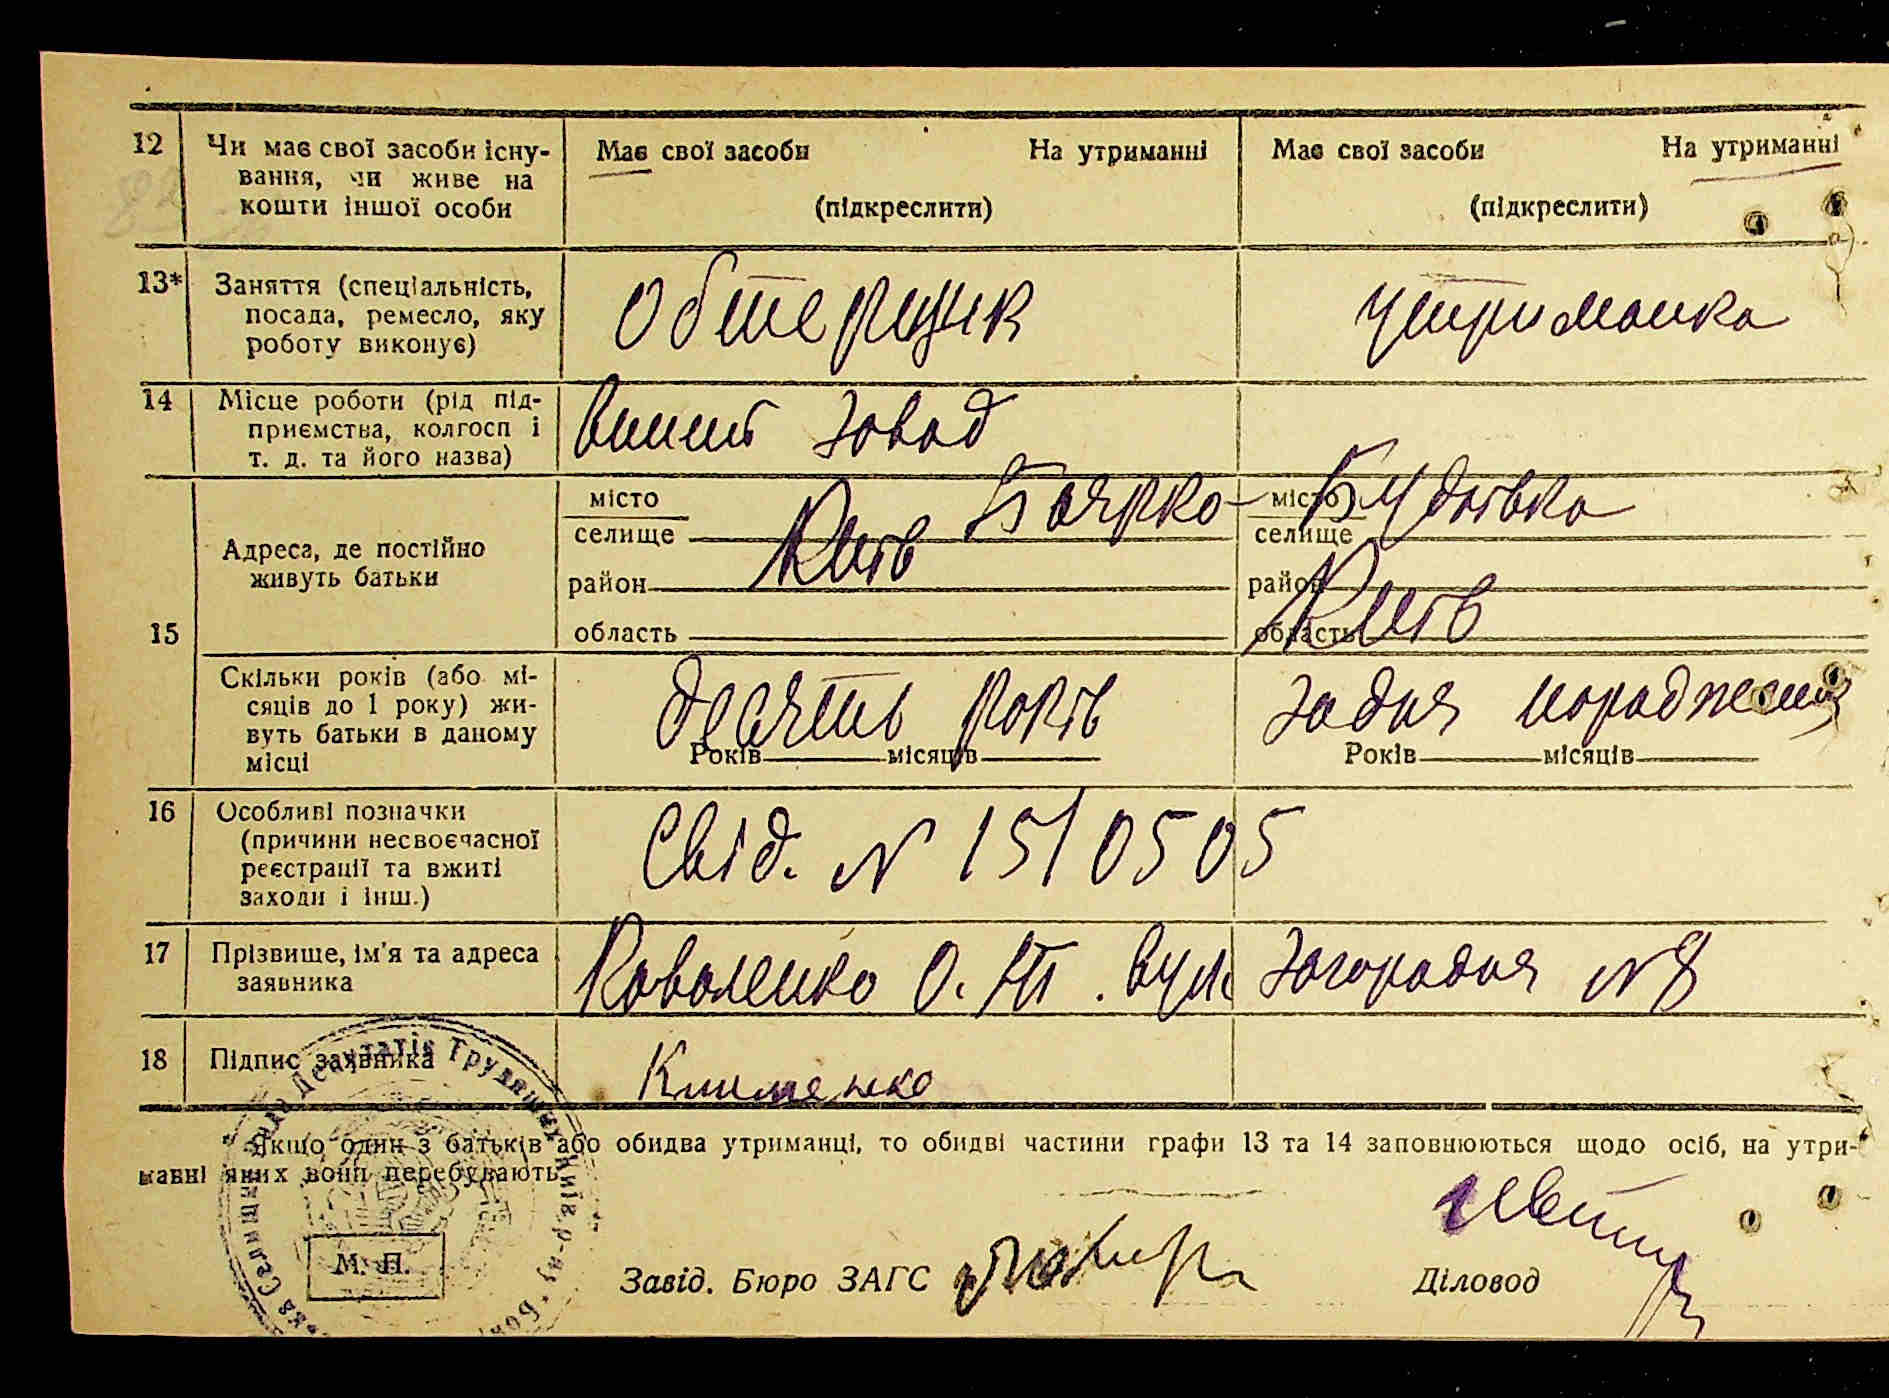 12 Чи має свої засоби існу- Має свої засоби На утриманні Має свої засоби На утриманні
вання, чи живе на
кошти іншої особи (підкреслити) (підкреслити)
13* Заняття (спеціальність,
посада, ремесло, яку Обтерщик утриманка
роботу виконує)
14 Місце роботи (рід під-
приємства, колгосп і завод
т. д. та його назва)
місто Боярко- місто Будаївка
селище селище
Адреса, де постійно
живуть батьки район Київ район
15 область область Київ
Скільки років (або мі-
сяців до 1 року) жи- десять років зодня народження
вуть батьки в даному Років місяців Років місяців
місці
16 Особливі позначки
(причини несвоєчасної Свід. N 1510505
реєстрації та вжиті
заходи і інш.)
17 Прізвище, ім'я та адреса Коваленко О. вул. Загородня N 8
заявника
18 Підпис заявника Клименко
* Якщо один з батьків або обидва утриманці, то обидві частини графи 13 та 14 заповнюються щодо осіб, на утри-
манні яких вони перебувають
М. П.
Завід. Бюро ЗАГС Діловод
Депутатів Трудящих Київ. р-ну